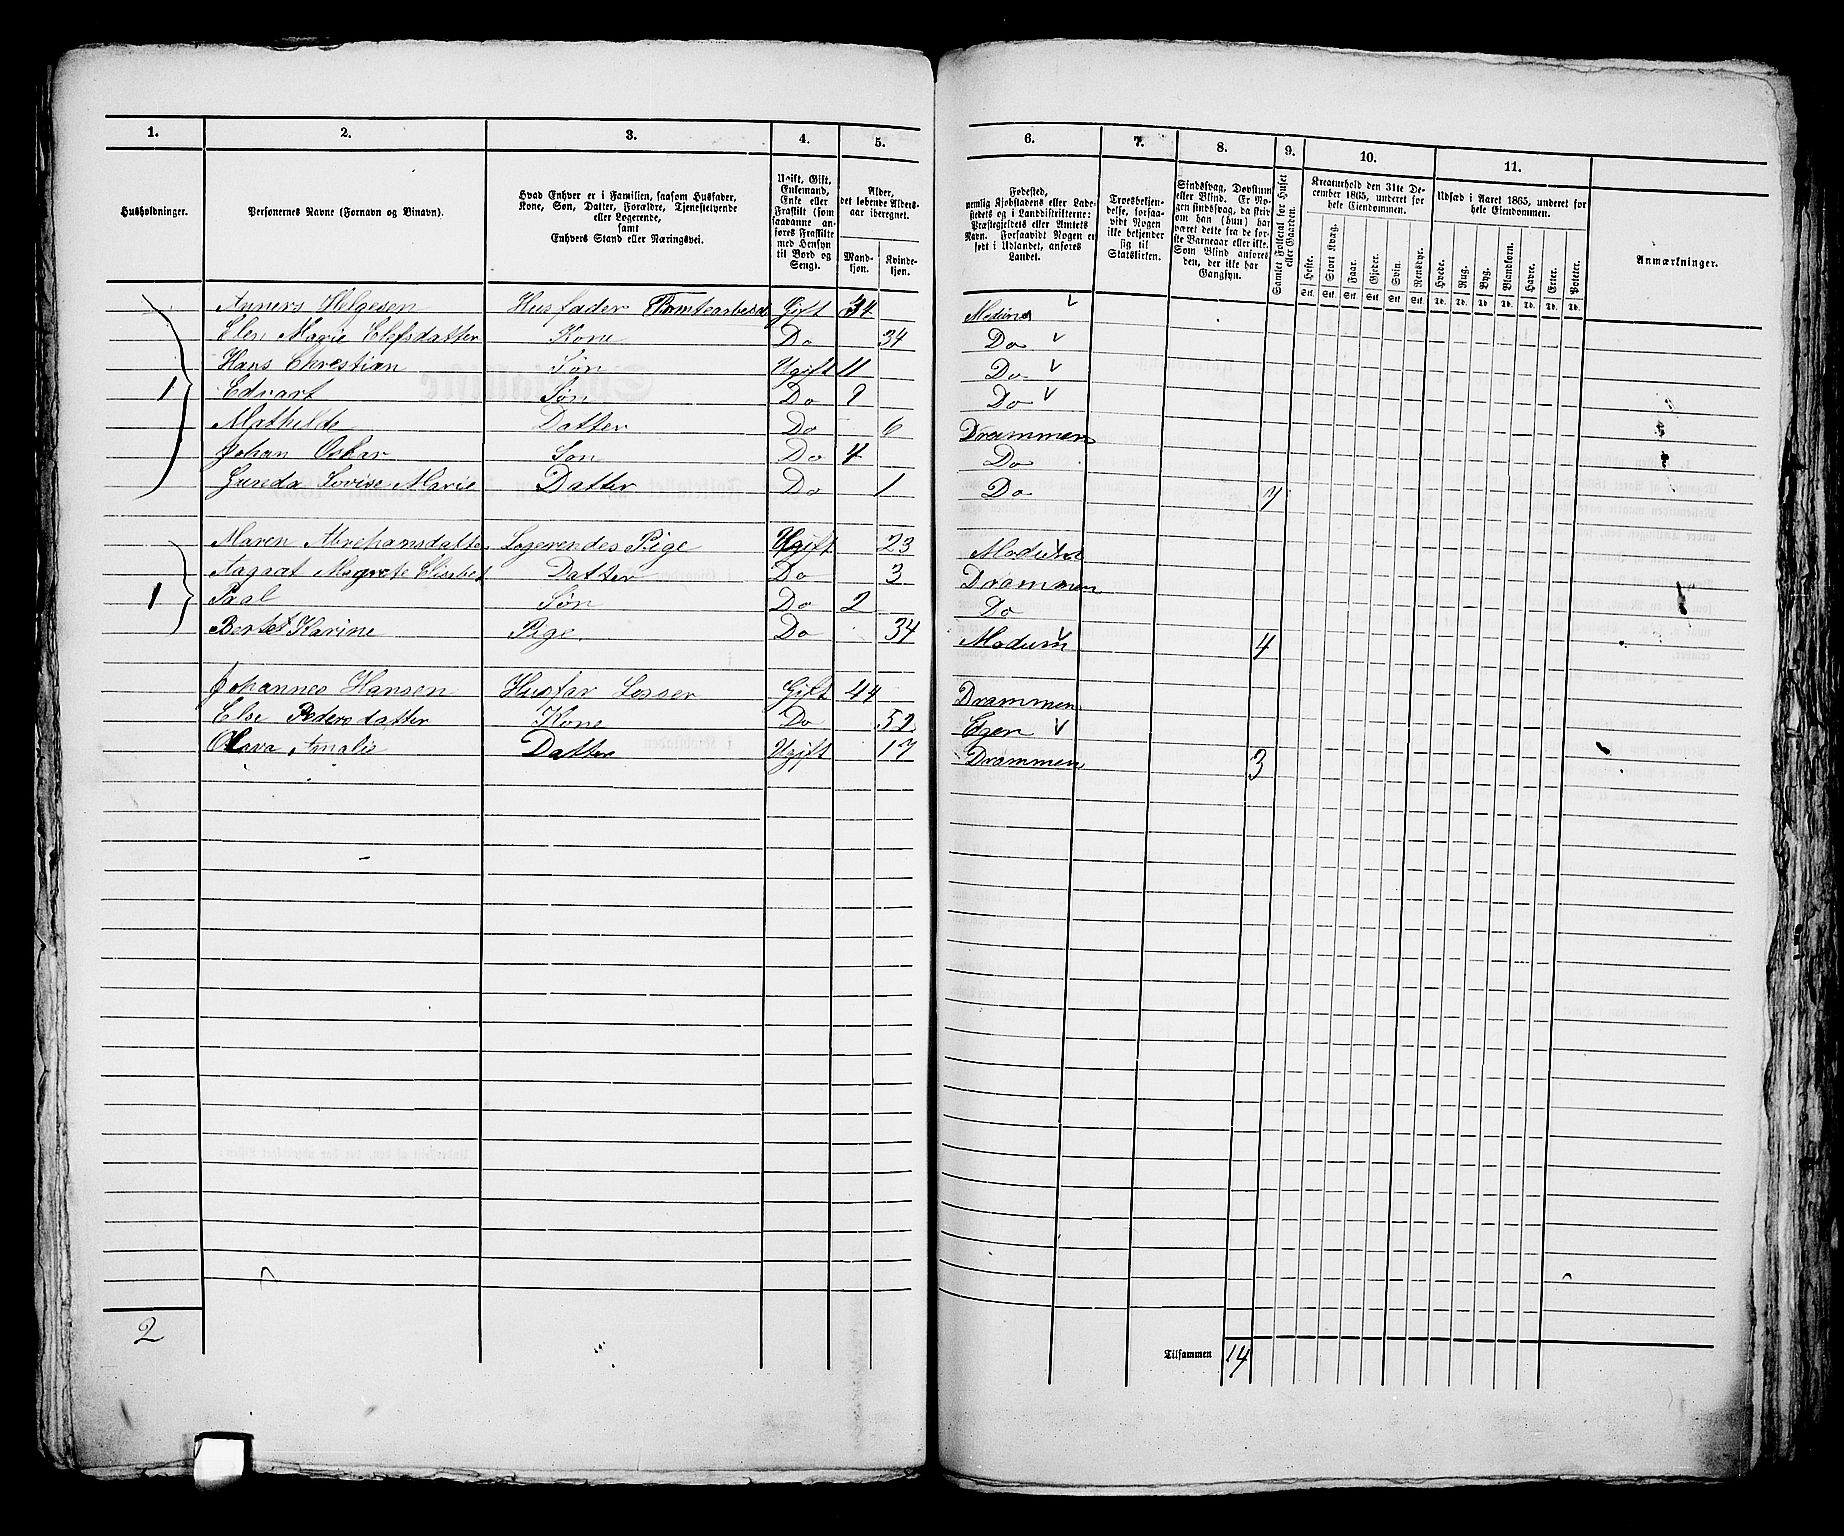 1. 2. 3. 4. 5. 6. 7. 8. 9. 10. 11.
Husholdninger.
Personernes Navne (Fornavn og Binavn).
Hvad Enhver er i Familien, saasom Husfader,
Kone, Søn, Datter, Forældre, Tjenestetyende
eller Logerende,
samt
Enhvers Stand eller Næringsvei.
Ugift, Gift,
Enkemand,
Enke eller
Fraskilt (som
saadanne an-
føres Fraskilte
med Hensyn
til Bord og
Seng).
Alder,
det løbende Alders-
aar iberegnet.
Mand-
kjøn.
Kvinde-
kjøn.
Fødested,
nemlig Kjøbstadens eller Lade-
stedets og i Landdistrikterne:
Præstegjeldets eller Amtets
Navn. Forsaavidt Nogen er
født i Udlandet, anføres
Landet.
Troesbekjen-
delse, forsaa-
vidt Nogen
ikke bekjender
sig til
Statskirken.
Sindssvag, Døvstum
eller Blind. Er No-
gen sindssvag, da skriv
om han (hun) har
været dette fra de før-
ste Barneaar eller ikke.
Som Blind anføres
den, der ikke har
Gangsyn.
Samlet Folketal for Huset
eller Gaarden.
Kreaturhold den 31te De-
cember 1865, underet for
hele Eiendommen.
Heste. Stort Kvæg. Faar. Gjeder. Svin. Rensdyr.
Stk. Stk. Stk. Stk. Stk. Stk.
Udsæd i Aaret 1865, underet for
hele Eiendommen.
Hvede. Rug. Byg. Blandkorn. Havre. Erter. Poteter.
Td. Td. Td. Td. Td. Td. Td.
Anmærkninger.
Anners Helgesen Husfader Gift 34
Elen Marie Elefsdatter Kone Do 34 Do
1 Hans Chrestian Søn Ugift 11 Do
Edvart Søn Do 9 Do
Mathilde Datter Do 6 Drammen
Johan Oskar Søn Do 4 Do
Lovise Marie Datter Do 1 Do 7
Maren Abrehamsdatter Logerendes Pige Ugift 23 Modum
1 Magrete Elisabet Datter Do 3 Drammen
Paal Søn Do 2 Do
Bertet Karine Pige Do 34 Modum 4
Johannes Hansen Husfar Losser Gift 44 Drammen
Else Pedersdatter Kone Do 52 Egen
Olava Amalie Datter Ugift 17 Drammen 3
2
Tilsammen 14